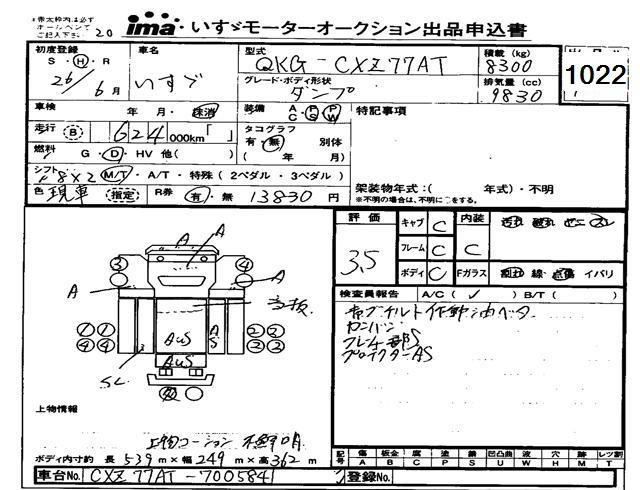 ※太枠内は必ず
ボールペンで
ご記入下さい
20
ima いすゞモーターオークション出品申込書
初度登録 S・H・R 26年 6月
車名 いすゞ
型式 QKG-CXZ77AT
積載 (kg) 8300
1022
グレード・ボディ形状 ダンプ
排気量 (cc) 9830
車検 年 月・抹消
装備 A/C P/S P/W
特記事項
走行 B 624 000km「 」
タコグラフ 有・無 別体 ( 年 月)
燃料 G・D・HV 他( )
シフト F8X2 M/T・A/T・特殊(2ペダル・3ペダル)
架装物年式:( 年式)・不明
※不明の場合は、不明に○をする
色 現車 指定
R券 有・無 13830 円
評価 3.5
キャブ C
フレーム C
ボディ C
内装 C
汚れ 破れ ヤニ スレ
Fガラス 割れ 線・点傷 イバリ
検査員報告 A/C( ✓ ) B/T( )
カンバン
フレーム部S
プロテクターAS
A
A
A
A
③
④
①①
④④
AoS
AoS
A
S
②②
③③
3
SL
上物情報
ボディ内寸約 長 539 m × 幅 249 m × 高 362 m
記号 傷 A 板金 B 腐 C 塗 P 錆 S 凹凸曲 U 波 W 穴 H 跡 M レツ割 T
車台No. CXZ77AT-7005841
登録No.